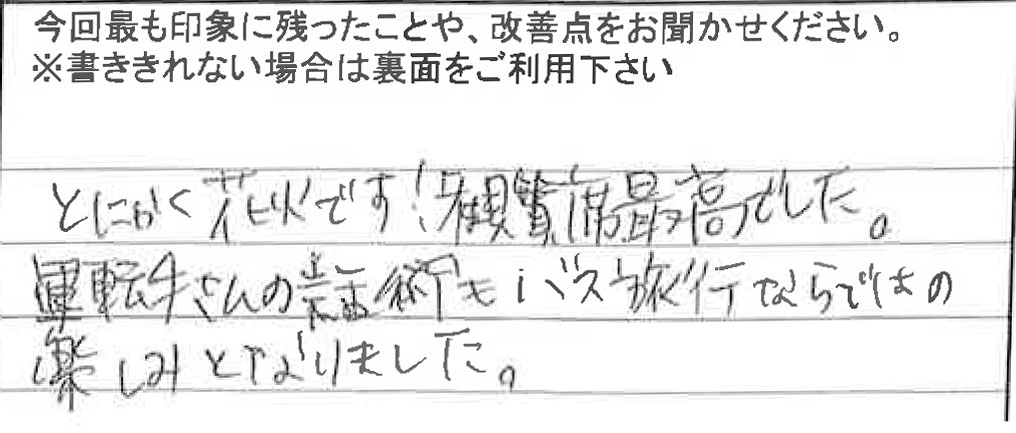 今回最も印象に残ったことや、改善点をお聞かせください。
※書ききれない場合は裏面をご利用下さい
とにかく花火です!観覧席最高でした。
運転手さんの話術もバス旅行ならではの
楽しみとなりました。